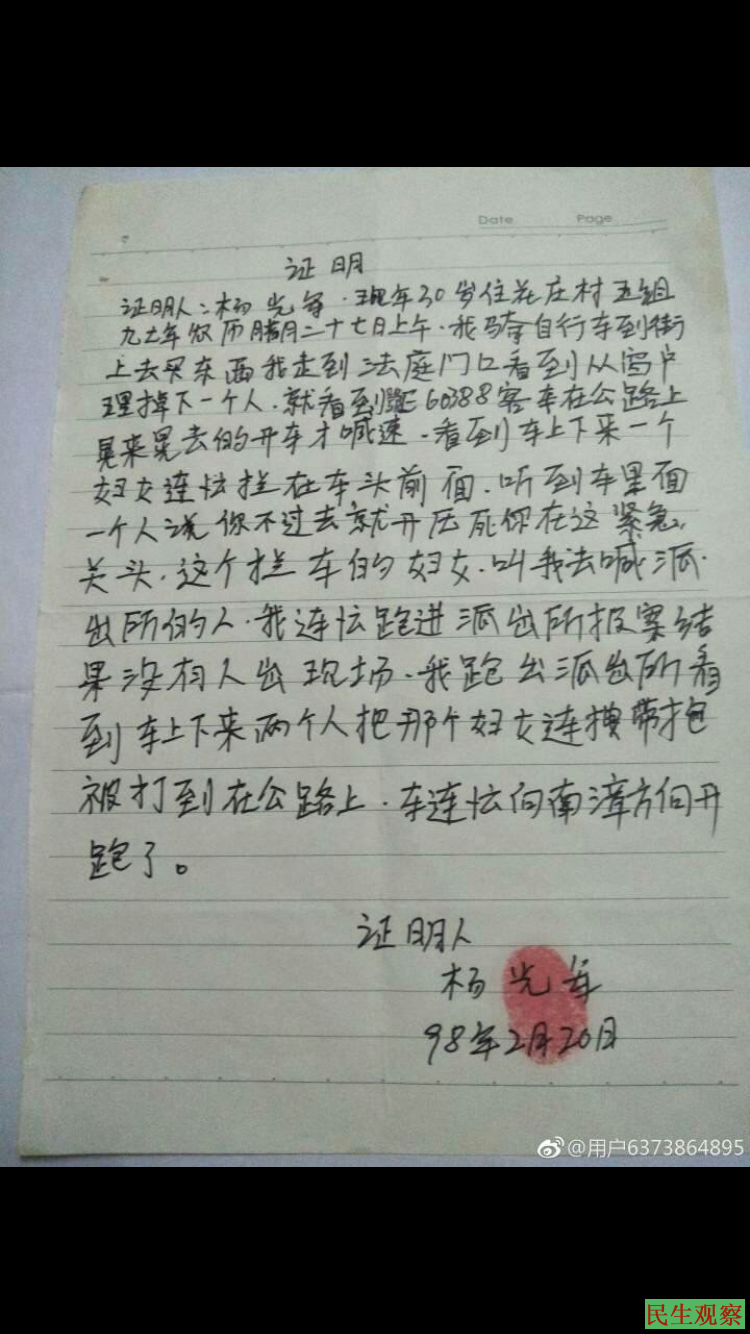 Date    Page
证明
证明人:杨光军.现年30岁住花庄村五组
九七年农历腊月二十七日上午.我骑自行车到街
上去买东西我走到法庭门口看到从窗户
理掉下一个人.就看到 60388客车在公路上
晃来晃去的开车才喊速.看到车上下来一个
妇女连忙拦在车头前面.听到车里面
一个人说你不过去就开压死你在这紧急
关头.这个拦车的妇女.叫我去喊派
出所的人.我连忙跑进派出所报案结
果没有人出现场.我跑出派出所看
到车上下来两个人把那个妇女连拽带抱
被打到在公路上.车连忙向南漳方向开
跑了。
证明人
杨光军
98年2月20日
@用户6373864895
民生观察